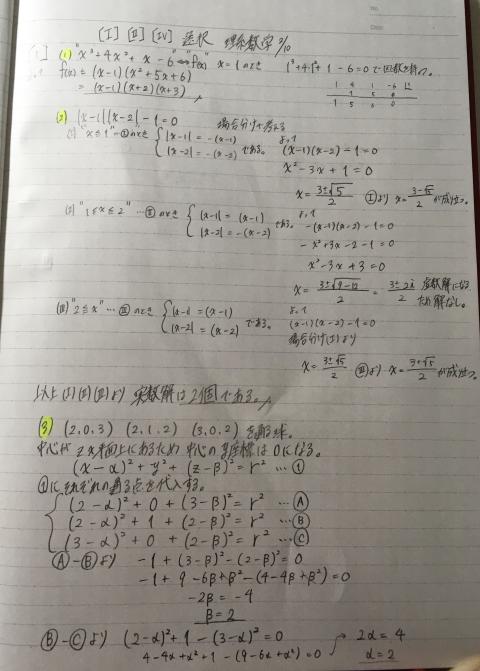 [I] [II] [IV] 選択 理系数学
[I] (1) "x³+4x²+x-6" ⇔ f(x) x=1のとき 1³+4・1²+1-6=0で因数を持つ。
f(x)=(x-1)(x²+5x+6)
=(x-1)(x+2)(x+3)
1 4 1 -6
1 5 6
1 5 6 0
(2) |x-1||x-2|-1=0 場合分けで考える
(I) "x≦1" …①のとき { |x-1|=-(x-1) |x-2|=-(x-2) である。 よって
(x-1)(x-2)-1=0
x²-3x+1=0
x=3±√5/2 ①より x=3-√5/2 が成立つ。
(II) "1≦x≦2" …②のとき { |x-1|=(x-1) |x-2|=-(x-2) である。 よって
-(x-1)(x-2)-1=0
-x²+3x-2-1=0
x²-3x+3=0
x=3±√9-12/2 = 虚数解になるため解なし。
(III) "2≦x" …のとき { |x-1|=(x-1) |x-2|=(x-2) である。 よって
(x-1)(x-2)-1=0
場合分け(I)より
x=3±√5/2 より x=3+√5/2 が成立つ。
以上(I)(II)(III)より 実数解は2個である。
(3) (2,0,3) (2,1,2) (3,0,2) を通る球。
中心がzx平面上にあるため中心のy座標は0になる。
(x-α)²+y²+(z-β)²=r² …①
①にそれぞれの通る点を代入する。
(2-α)²+0+(3-β)²=r² …Ⓐ
(2-α)²+1+(2-β)²=r² …Ⓑ
(3-α)²+0+(2-β)²=r² …Ⓒ
Ⓐ-Ⓑより -1+(3-β)²-(2-β)²=0
-1+9-6β+β²-(4-4β+β²)=0
-2β=-4
β=2
Ⓑ-Ⓒより (2-α)²+1-(3-α)²=0
4-4α+α²+1-(9-6α+α²)=0
2α=4
α=2